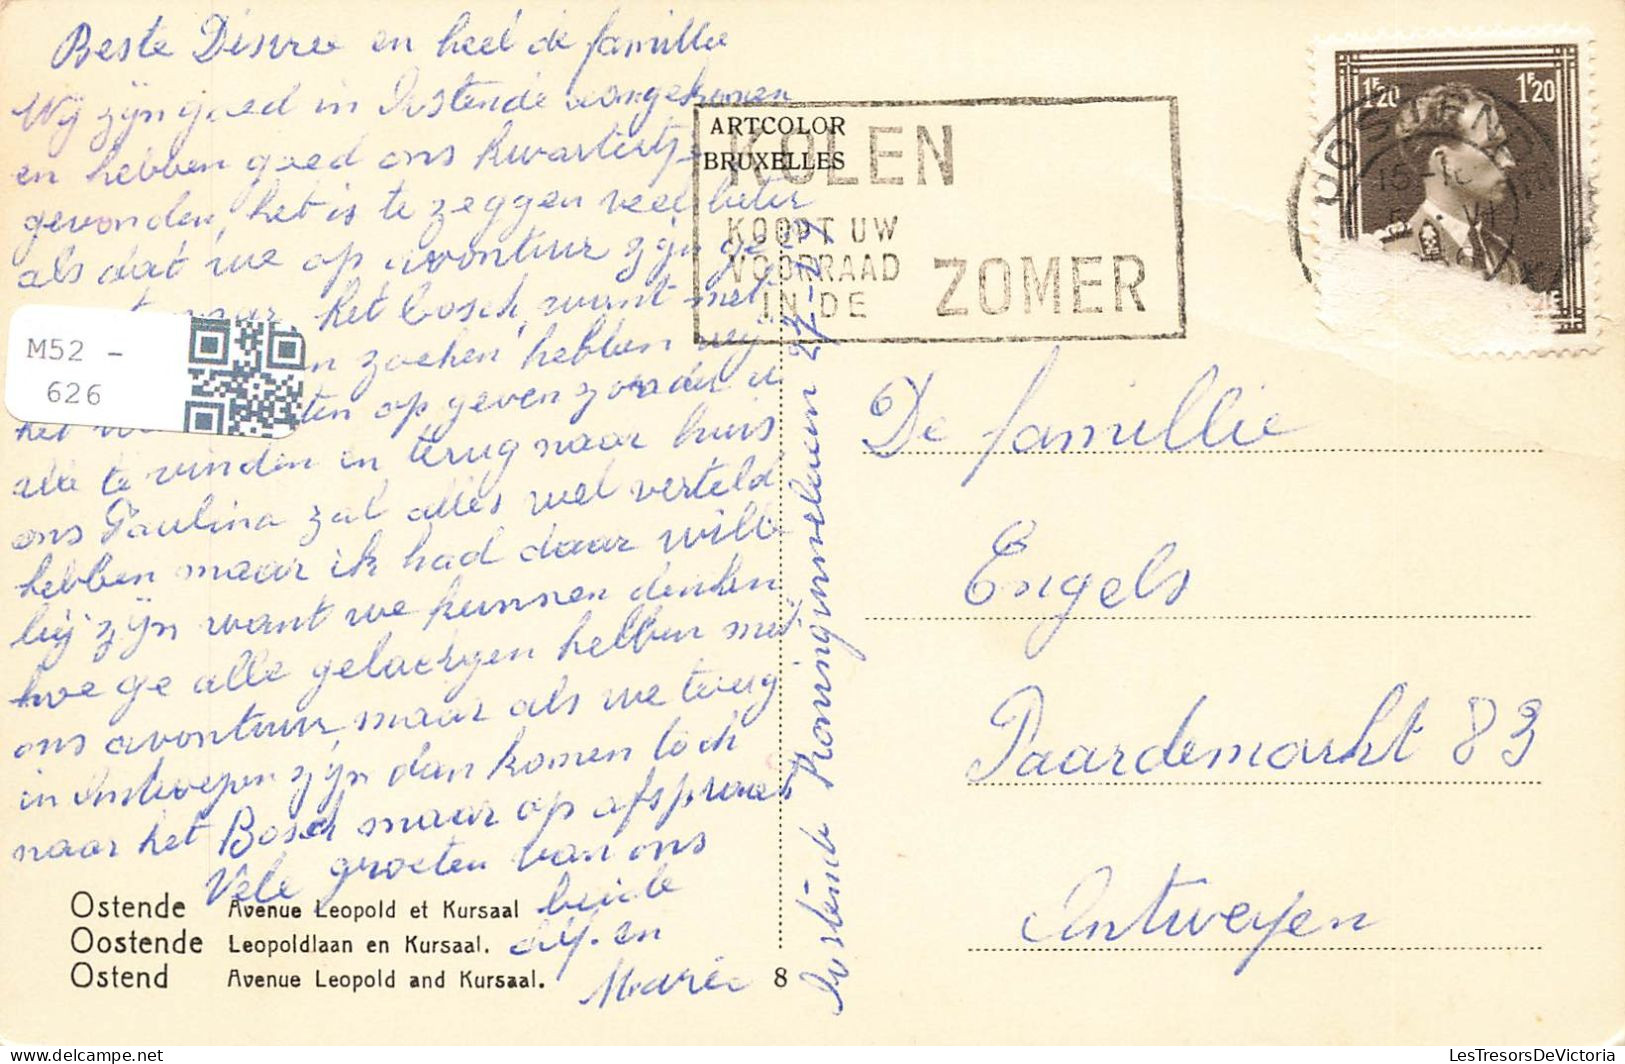 Beste Désiree en heel de famillie
Wij zijn goed in Oostende aangekomen
en hebben goed ons kwartiertje
gevonden, het is te zeggen veel beter
als dat we op avontuur zijn ge
naar het bosch, want met
zoeken hebben wij
het op geven zonder u
alle te vinden en terug naar huis
ons Paulina zal alles wel verteld
hebben maar ik had daar wille
bij zijn want we kunnen denken
hoe ge alle gelachgen hebben met
ons avontuur, maar als we terug
in Antwerpen zijn dan komen toch
naar het Bosch maar op afspraak
Vele groeten van ons
beide
Alf. en
Marie
Ostende Avenue Leopold et Kursaal
Oostende Leopoldlaan en Kursaal.
Ostend Avenue Leopold and Kursaal.
8
M52 -
626
ARTCOLOR
BRUXELLES
KOLEN
KOOPT UW
VOORRAAD
IN DE
ZOMER
1F20
1F20
OOSTENDE
De famillie
Engels
Paardemarkt 83
Antwerpen
LesTresorsDeVictoria